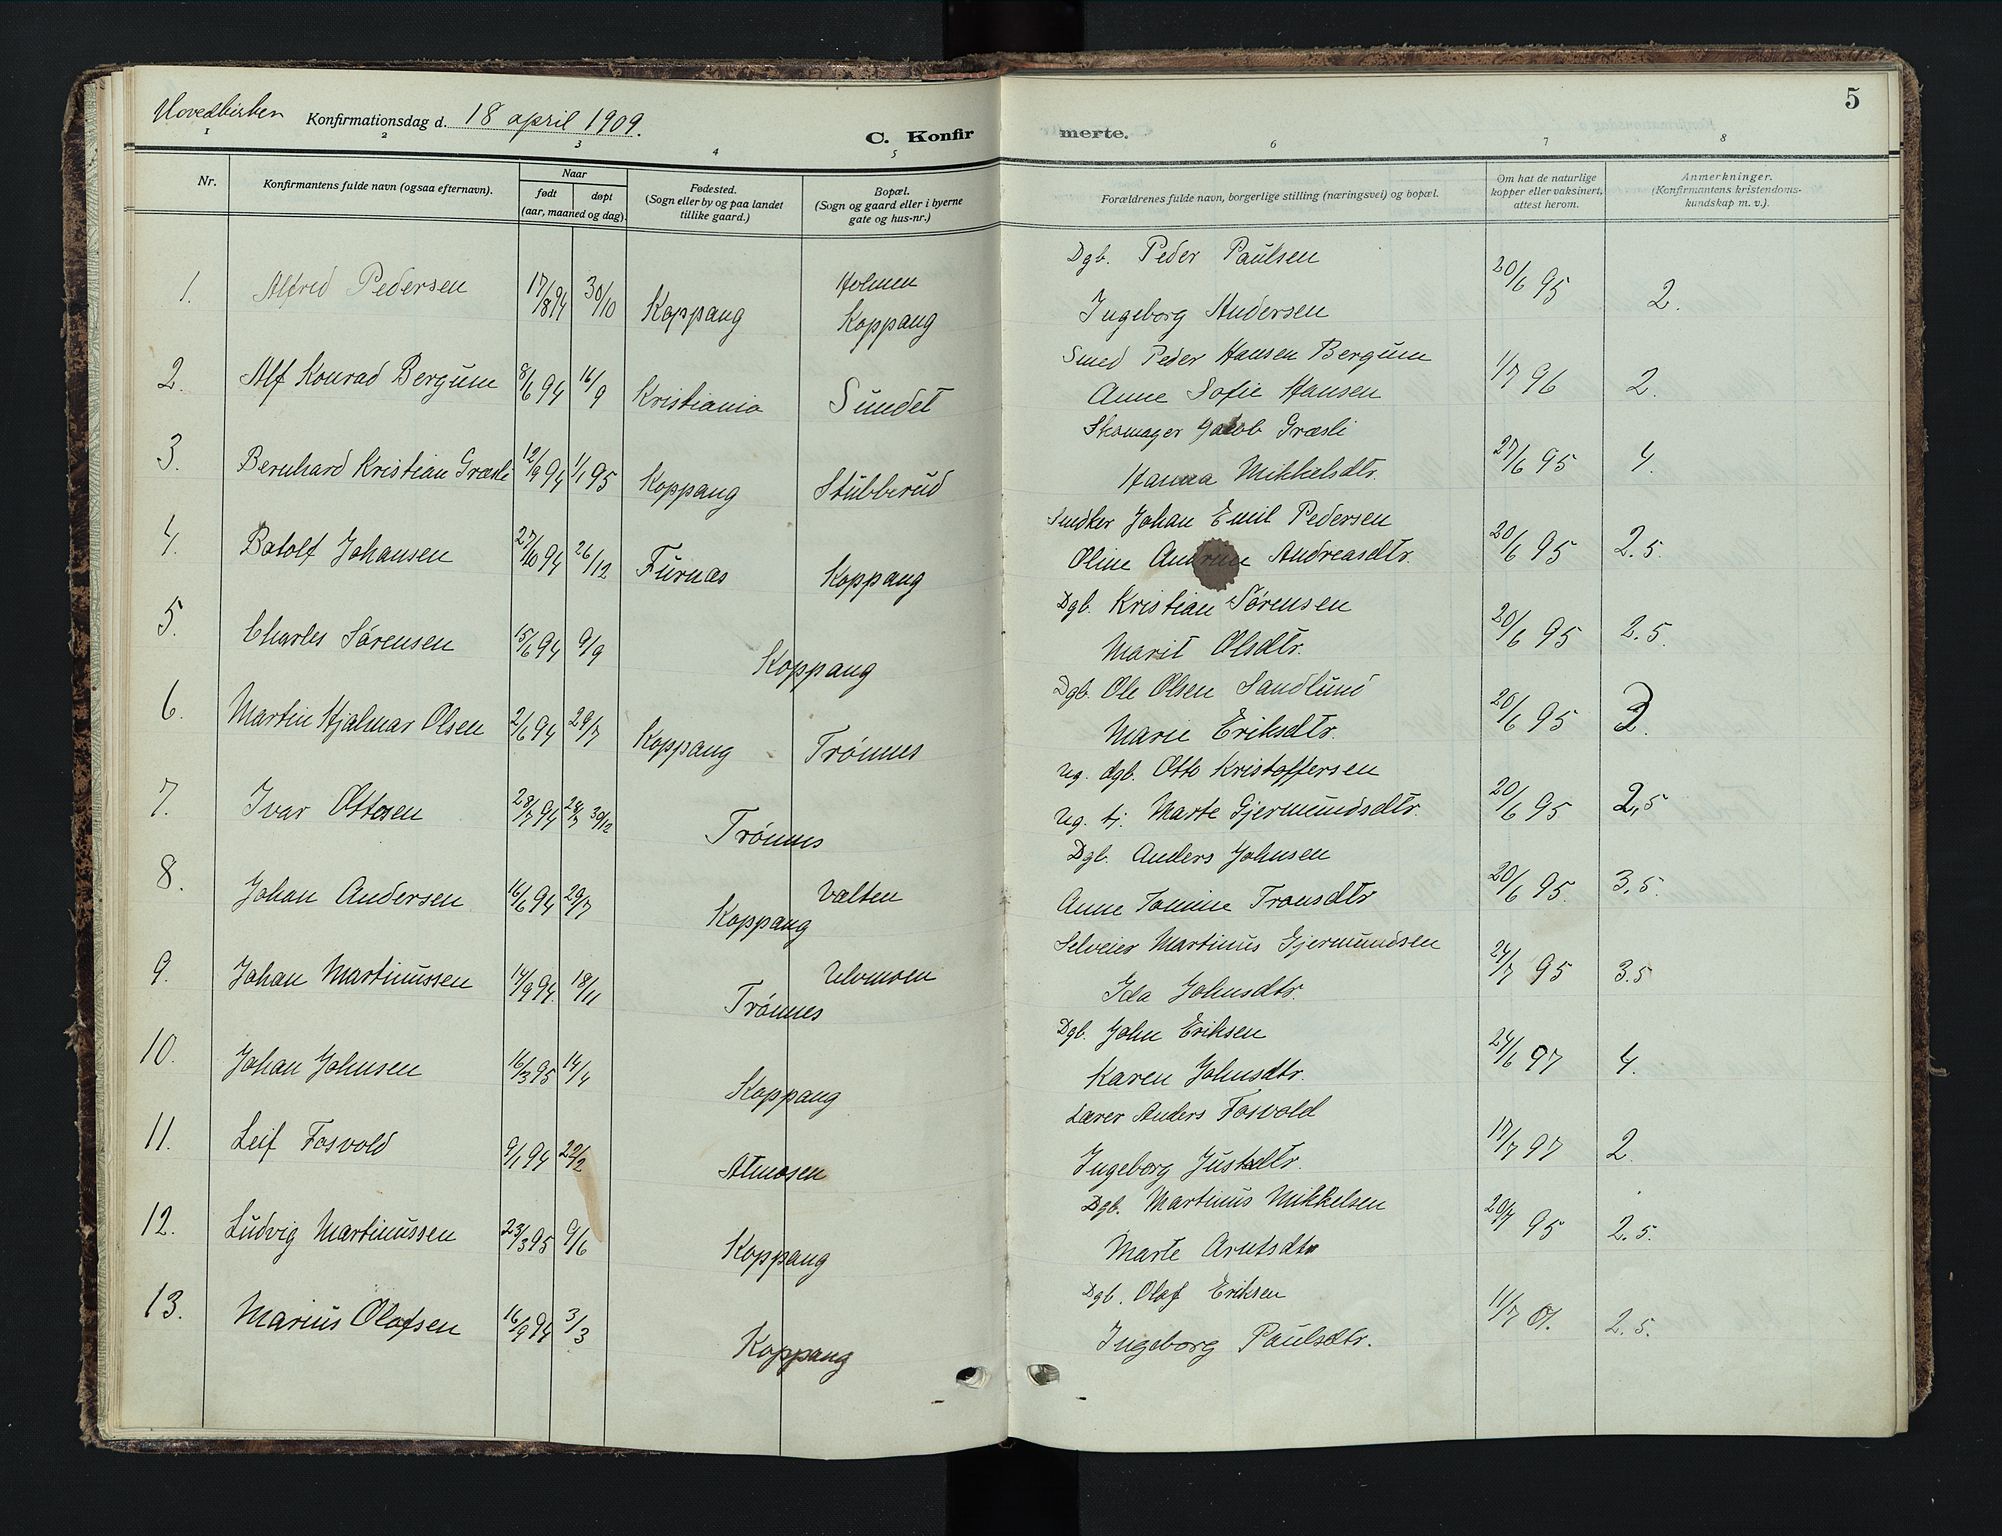 Hovedkirken Konfirmationsdag d. 18 april 1909. C. Konfir merte. 5
1 2 3 4 5 6 7 8
Nr. Konfirmantens fulde navn (ogsaa efternavn). Naar født døpt (aar, maaned og dag). Fødested. (Sogn eller by og paa landet tillike gaard.) Bopæl. (Sogn og gaard eller i byerne gate og hus-nr.) Forældrenes fulde navn, borgerlige stilling (næringsvei) og bopæl. Om hat de naturlige kopper eller vaksinert, attest herom. Anmerkninger. (Konfirmantens kristendoms- kundskap m. v.).
Dgb. Peder Paulsen
1. Alfred Pedersen 17/8 94 30/10 Koppang Holmen Koppang 20/6 95 2.
Ingeborg Andersen
Smed Peder Hansen Bergum
2. Alf Konrad Bergum 8/6 94 16/9 Kristiania Sundet 1/7 96 2.
Anne Sofie Hansen
Skomager Jacob Græsli
3. Bernhard Kristian Græsli 12/9 94 1/1 95 Koppang Stubberud 27/6 95 4.
Hanna Mikkelsdtr.
Johan Emil Pedersen
4. Botolf Johansen 27/10 94 26/12 Furnæs Koppang 20/6 95 2.5.
Oline Andreasdtr.
Dgb. Kristian Sørensen
5. Charles Sørensen 15/6 94 9/9 Koppang 20/6 95 2.5.
Marit Olsdtr.
Dgb. Ole Olsen Sandlund
6. Martin Hjalmar Olsen 2/6 94 29/7 Koppang Trønnes 20/6 95 3.
Marie Eriksdtr.
Ug. dgb. Otto Kristoffersen
7. Ivar Ottosen 28/7 94 30/12 Trønnes 20/6 95 2,5
Ug. tj. Marte Gjermundsdtr.
Dgb. Anders Johnsen
8. Johan Andersen 16/6 94 29/7 Koppang Vælten 20/6 95. 3.5.
Anne Tomine Tronsdtr
Selveier Martinus Gjermundsen
9. Johan Martinussen 14/9 94. 18/11 Trønnes Ulvmoen 24/7 95 3.5
Ida Johnsdtr.
Dgb. John Eriksen
10. Johan Johnsen 16/3 95 14/4 Koppang 24/6 97 4.
Karen Johnsdtr.
Lærer Anders Fosvold
11. Leif Fosvold 9/1 94 22/2 Atnosen 17/7 97 2.
Ingeborg Justdtr.
Dgb. Martinus Mikkelsen
12. Ludvig Martinussen 23/3 95 9/6 Koppang 20/7 95 2.5.
Marte Arntsdtr
Dgb. Olaf Eriksen
13. Marius Olafsen 16/9 94 3/3 Koppang 11/7 01. 2.5.
Ingeborg Paulsdtr.